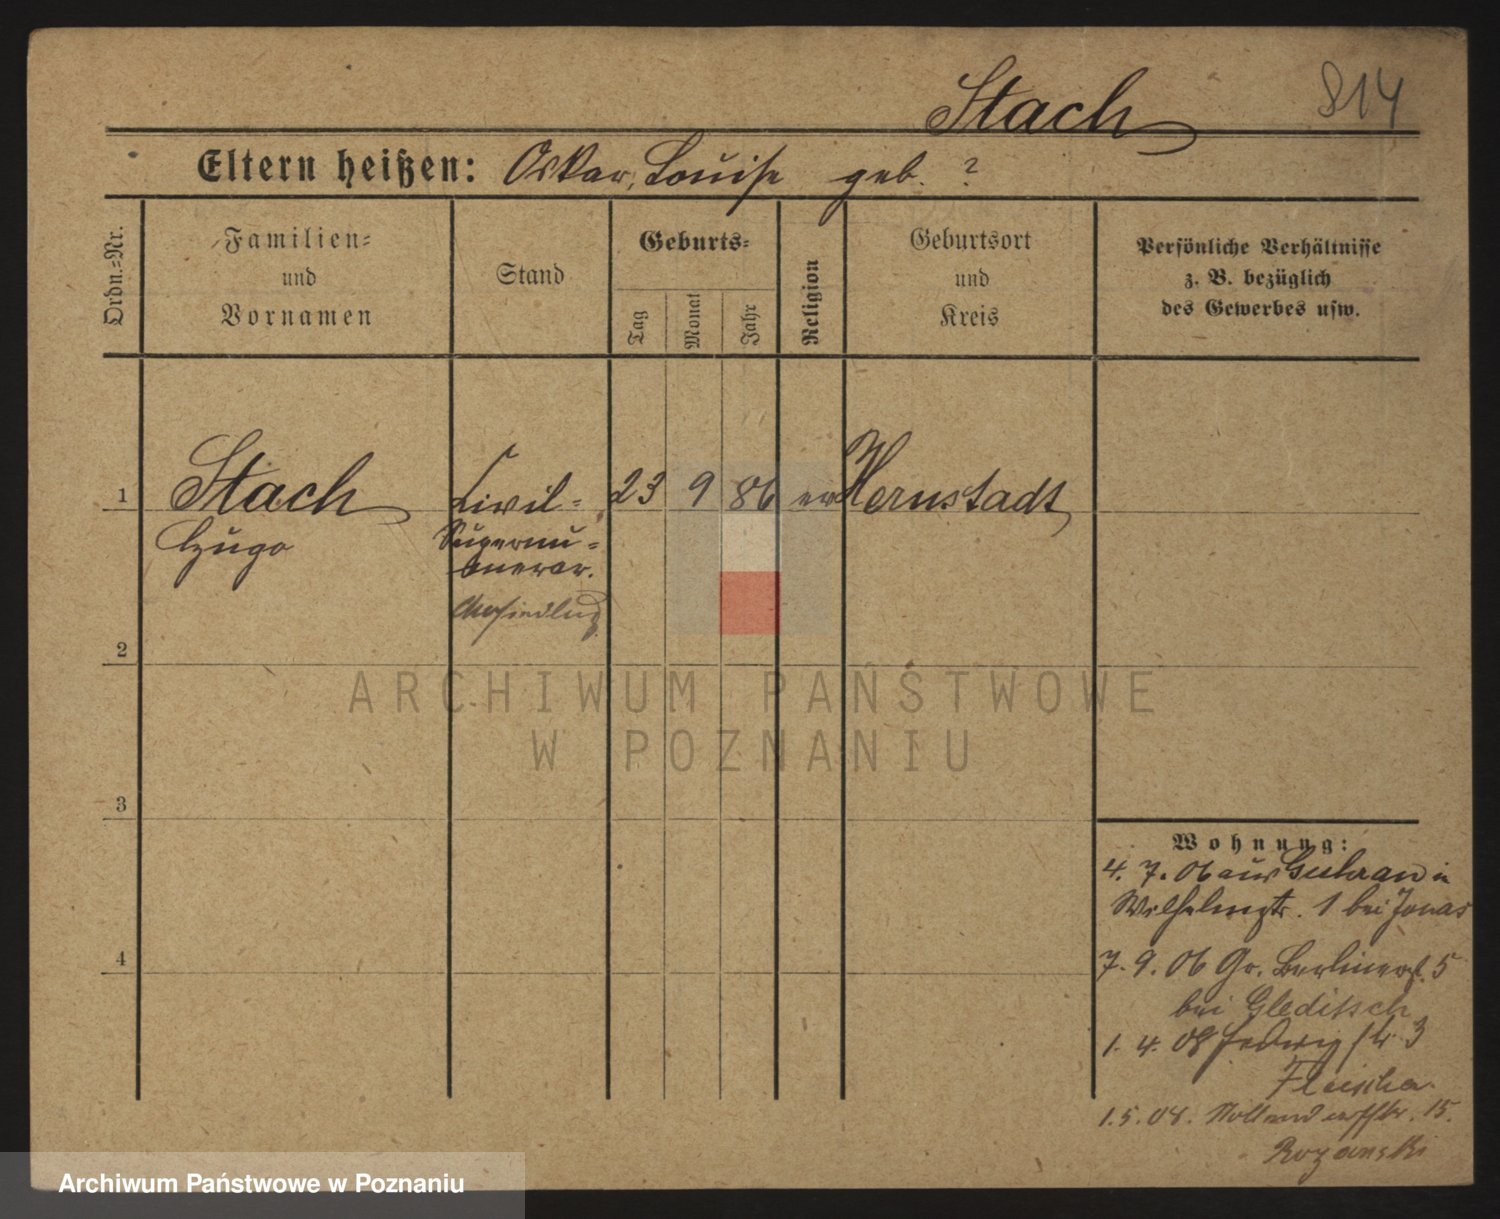 Stach
814
Eltern heißen: Oskar, Louise geb. ?
Ordn.-Nr.
Familien-
und
Vornamen
Stand
Geburts-
Tag
Monat
Jahr
Religion
Geburtsort
und
Kreis
Persönliche Verhältnisse
z. B. bezüglich
des Gewerbes usw.
1
Stach
Hugo
Civil-
Supernu-
merar.
23 9 86 ev Hernstadt
2
3
4
ARCHIWUM PAŃSTWOWE
W POZNANIU
Wohnung:
4. 7. 06 aus Guhrau in
Wilhelmstr. 1 bei Jonas
7. 9. 06 Gr. Berlinerst. 5
bei Gleditsch
1. 4. 08 Hedwigstr 3
Fleischer
1. 5. 08. Nollendorfstr. 15.
Rozanski
Archiwum Państwowe w Poznaniu